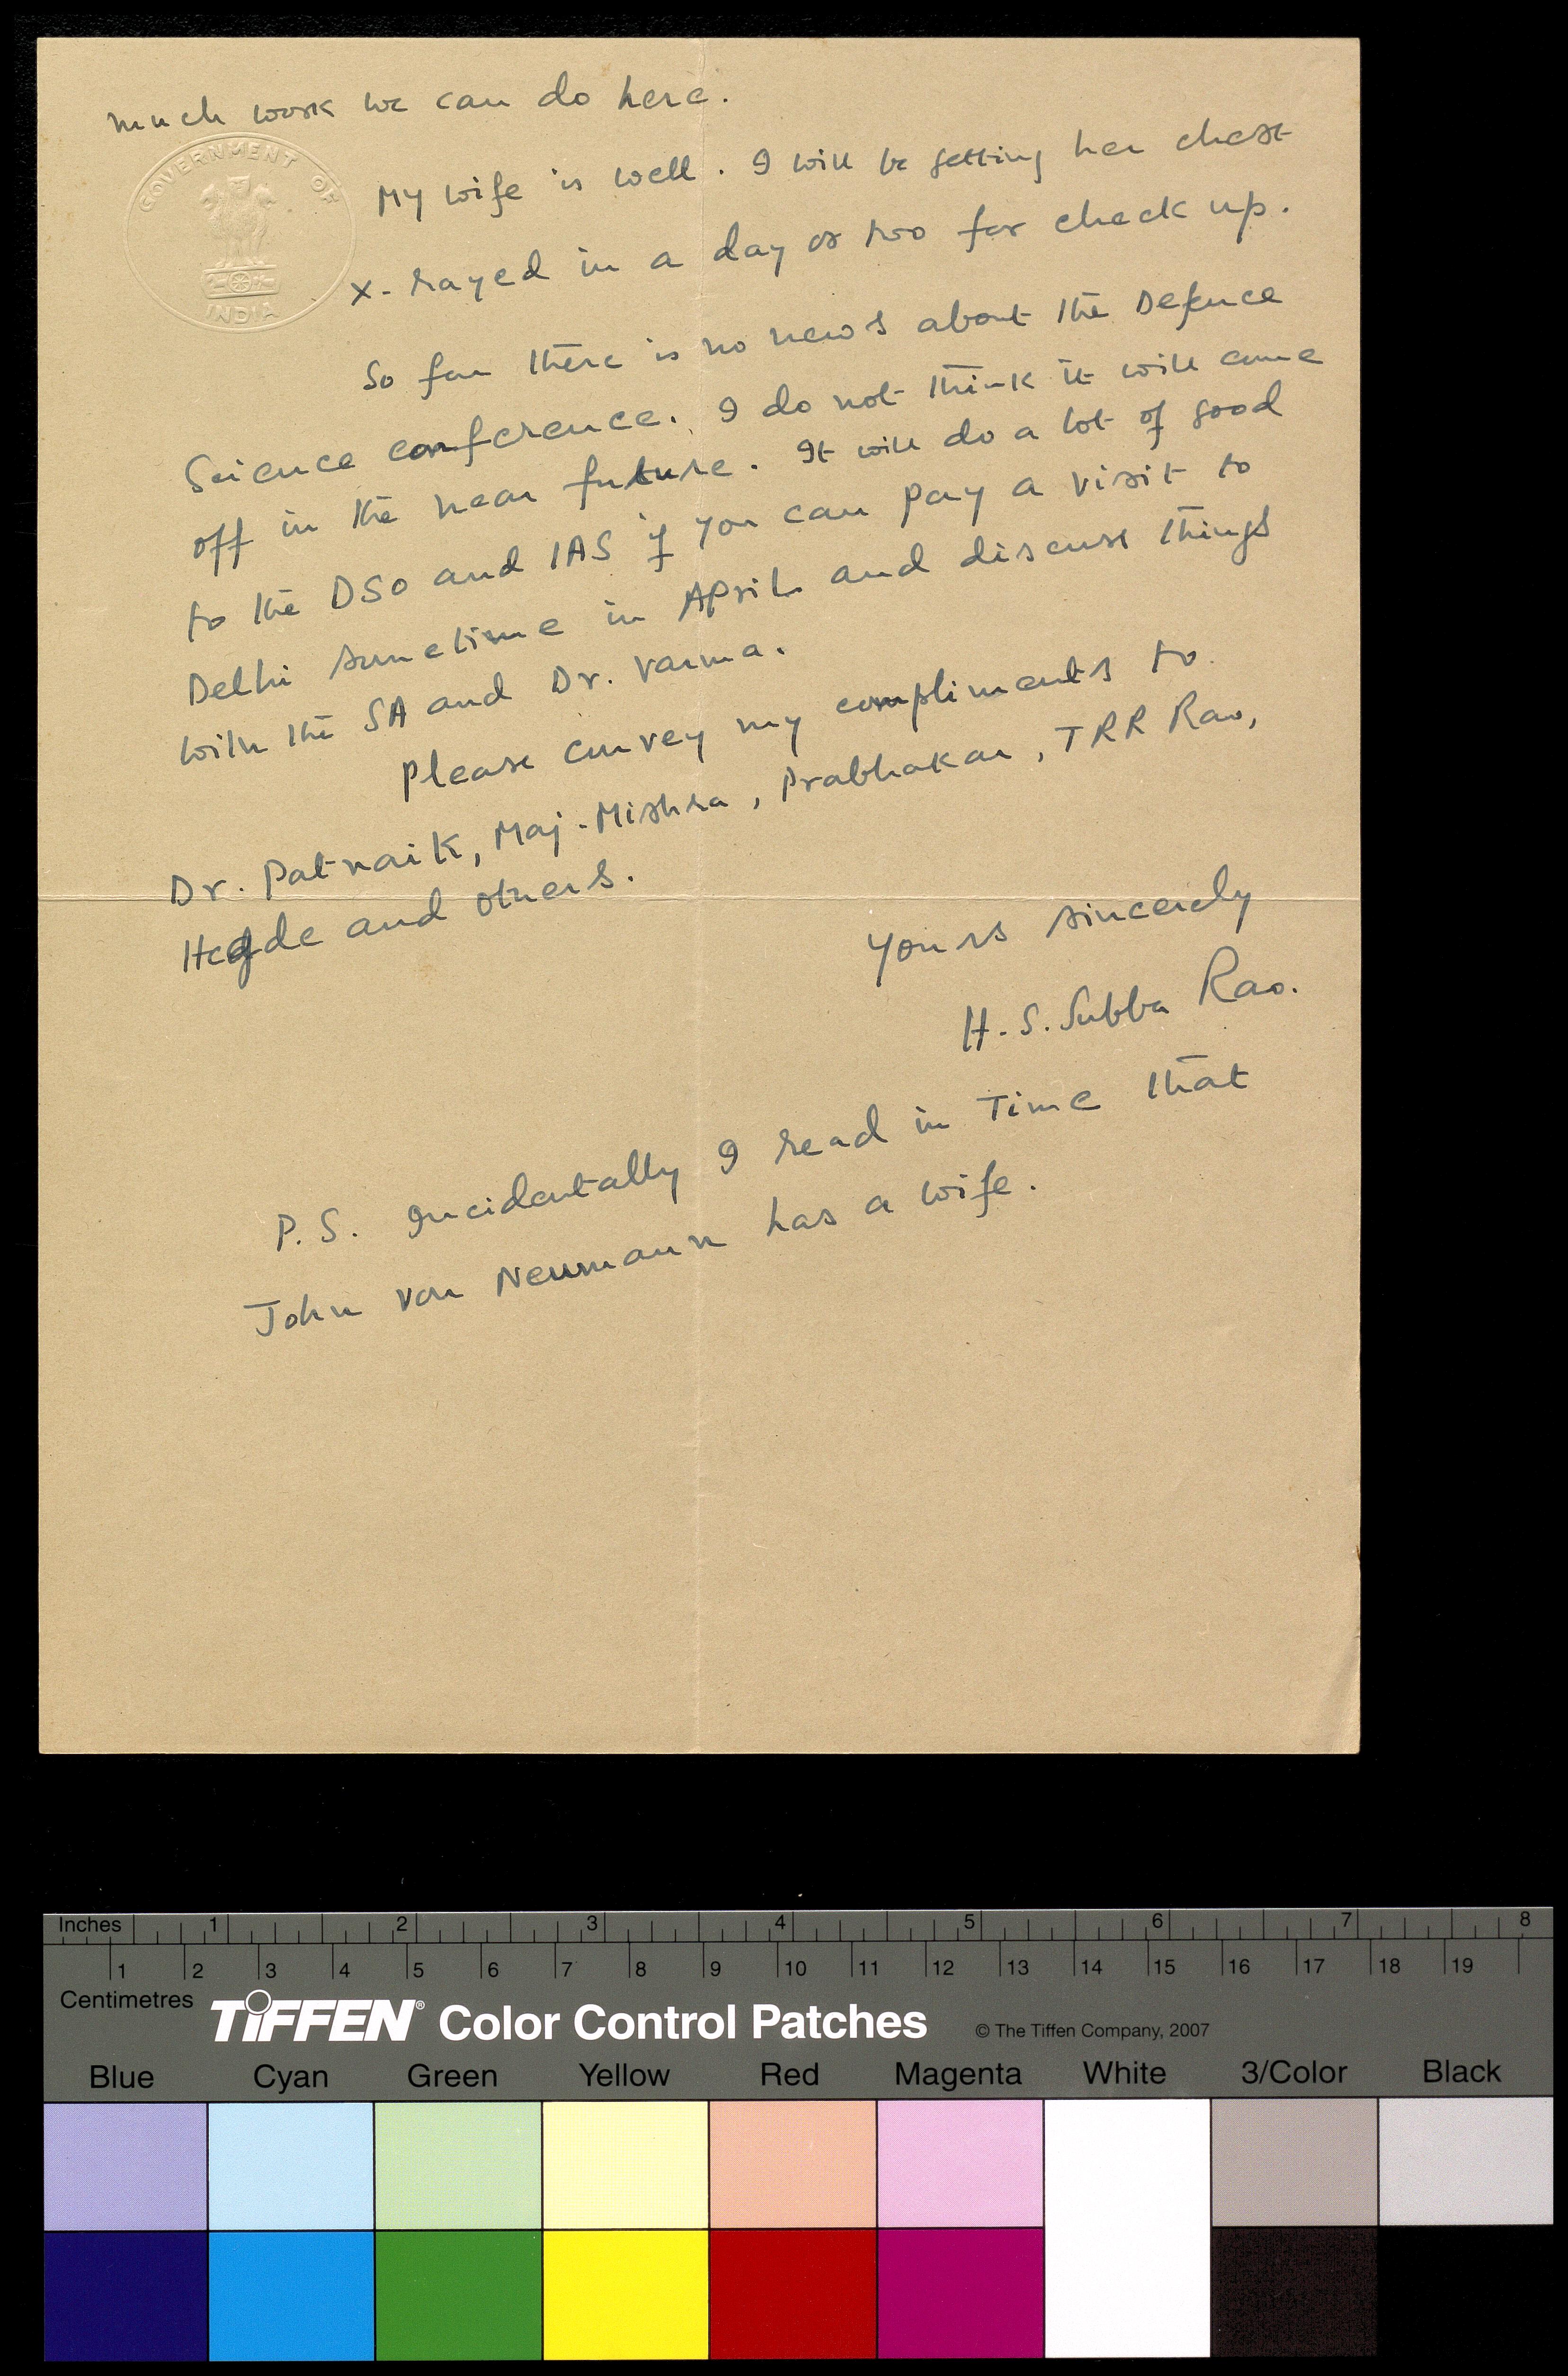 much work we can do here.
GOVERNMENT OF
INDIA
My wife is well. I will be getting her chest
x-rayed in a day or two for check up.
So far there is no news about the Defence
Science conference. I do not think it will come
off in the near future. It will do a lot of good
to the DSO and IAS if you can pay a visit to
Delhi sometime in April and discuss things
with the SA and Dr. Varma.
Please convey my compliments to
Dr. Patnaik, Maj. Mishra, Prabhakar, TRR Rao,
Hegde and others.
Yours sincerely
H. S. Subba Rao.
P. S. Incidentally I read in Time that
John von Neumann has a wife.
Inches 1 2 3 4 5 6 7 8
1 2 3 4 5 6 7 8 9 10 11 12 13 14 15 16 17 18 19
Centimetres
TIFFEN® Color Control Patches © The Tiffen Company, 2007
Blue Cyan Green Yellow Red Magenta White 3/Color Black